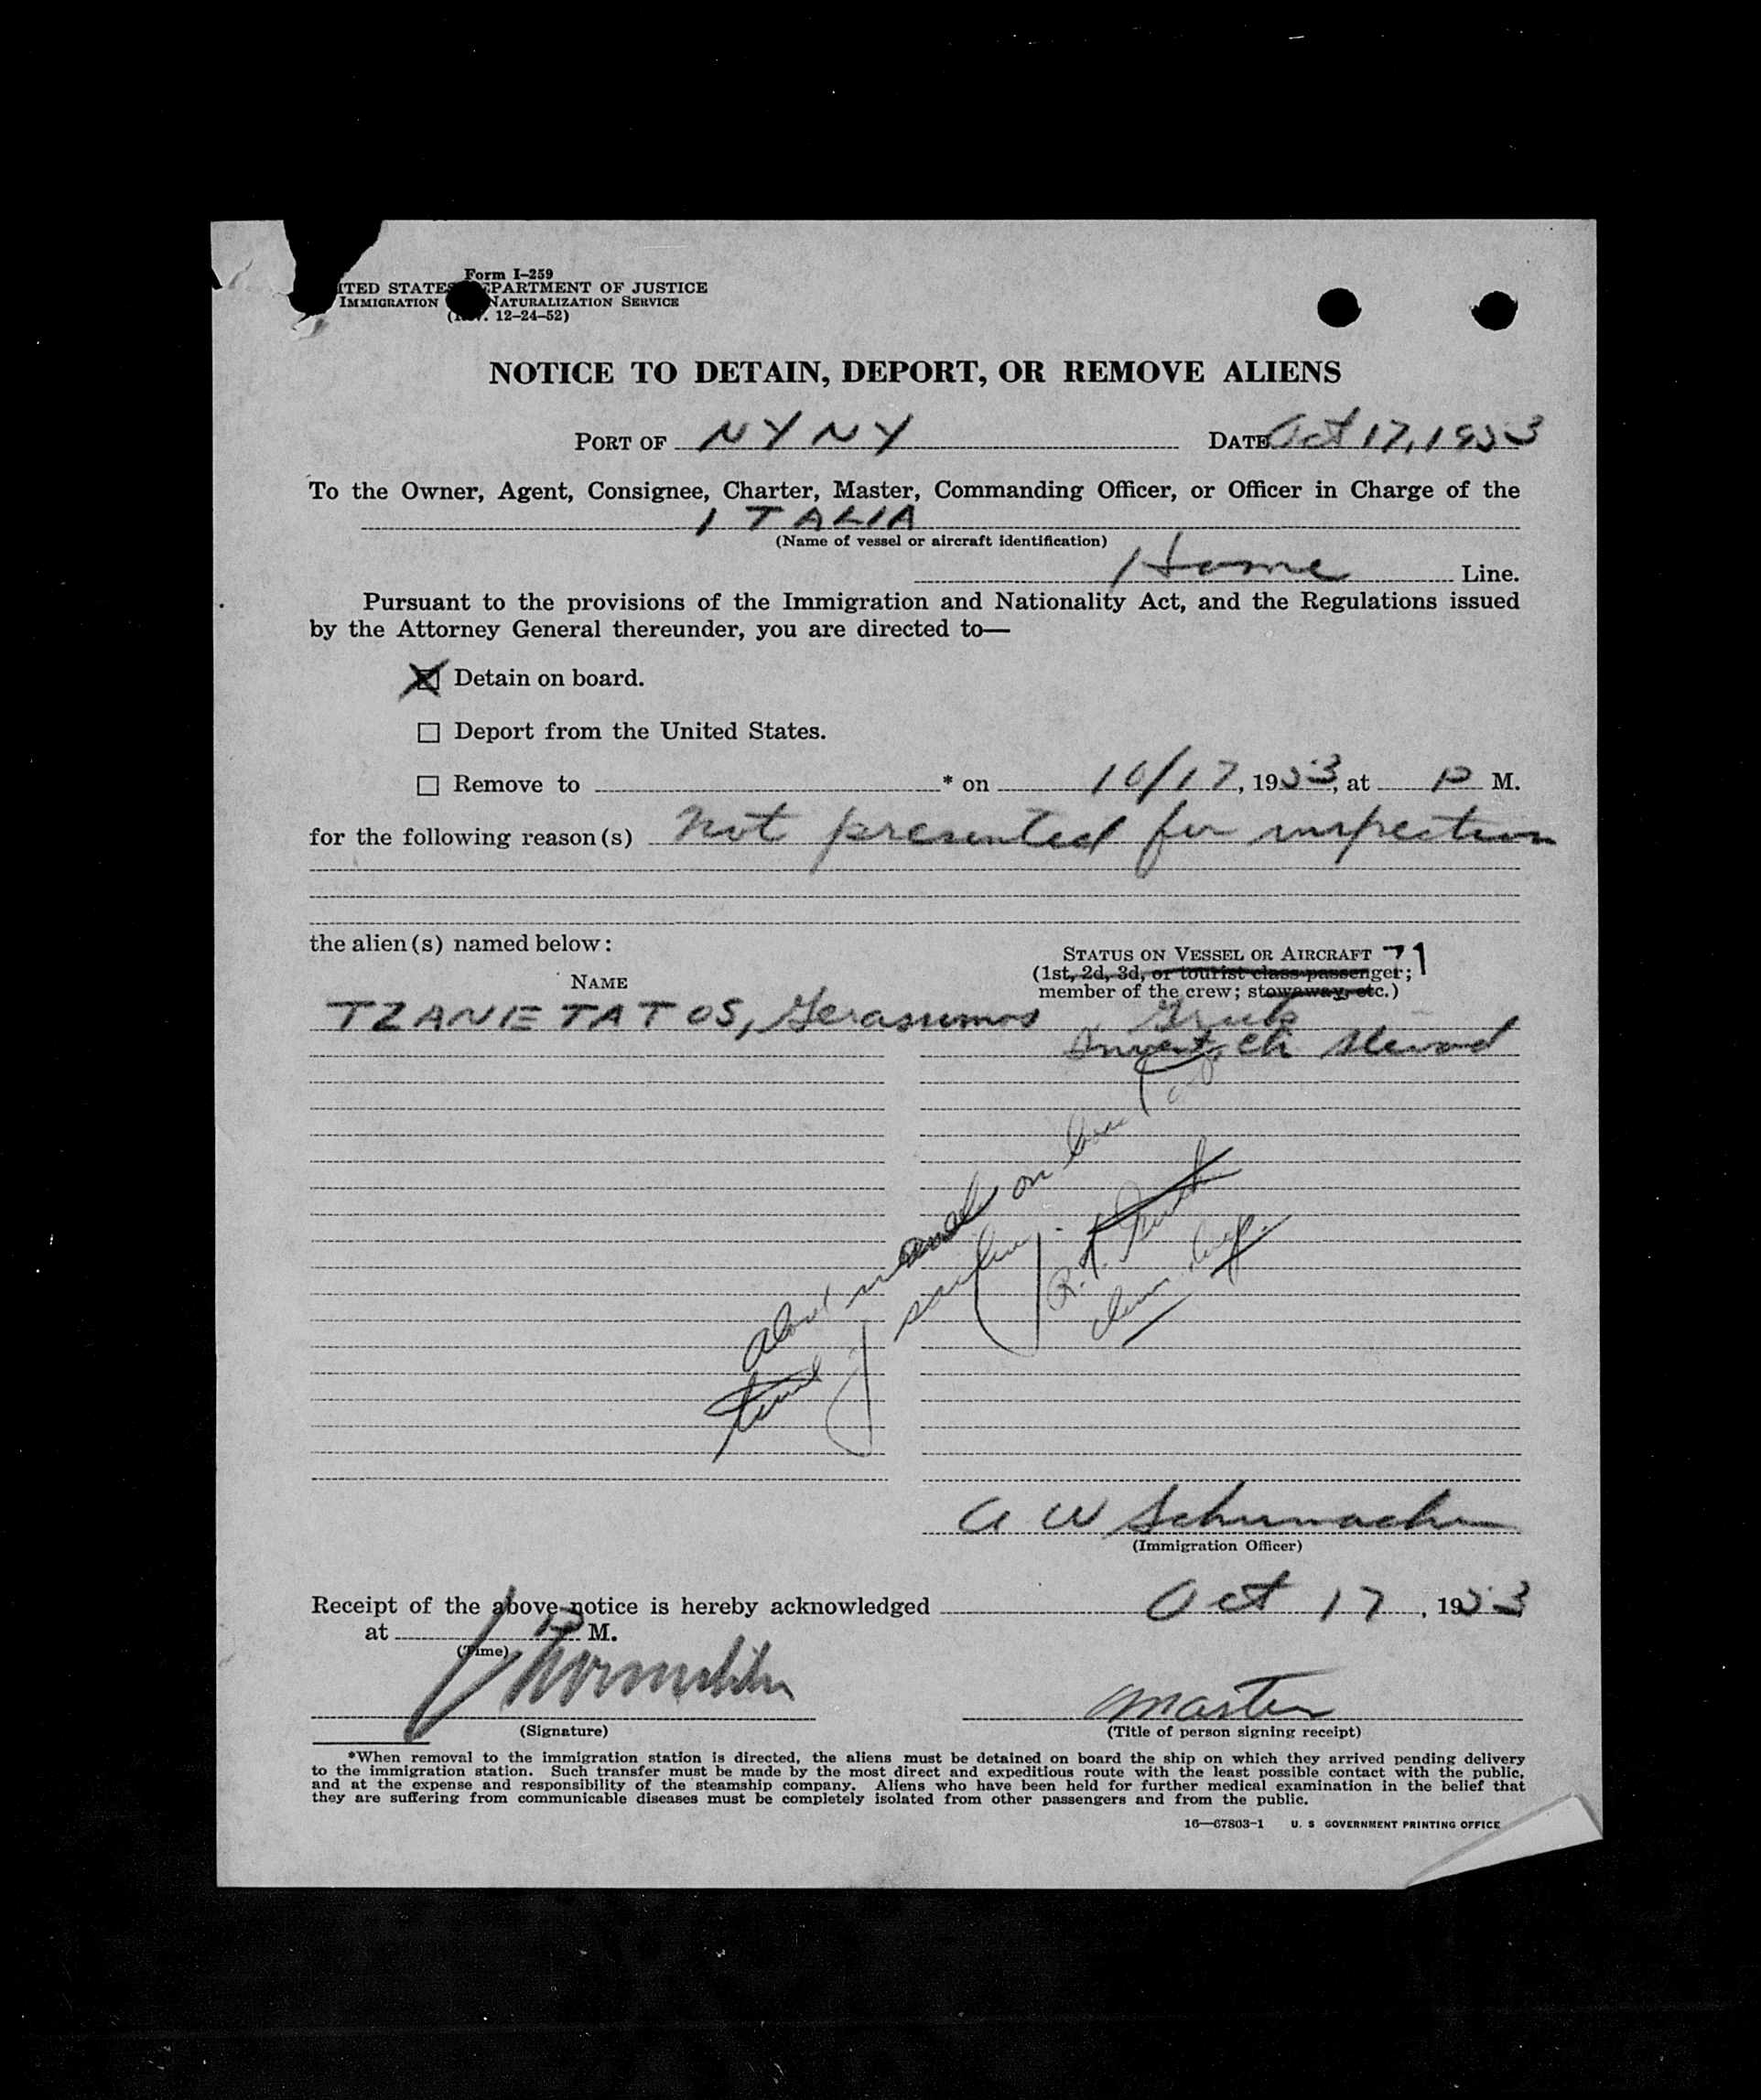 Form I-259
ITED STATES EPARTMENT OF JUSTICE
IMMIGRATION NATURALIZATION SERVICE
12-24-52)
NOTICE TO DETAIN, DEPORT, OR REMOVE ALIENS
PORT OF NY NY DATE Oct 17, 1953
To the Owner, Agent, Consignee, Charter, Master, Commanding Officer, or Officer in Charge of the
ITALIA
(Name of vessel or aircraft identification)
Home Line.
Pursuant to the provisions of the Immigration and Nationality Act, and the Regulations issued
by the Attorney General thereunder, you are directed to—
Detain on board.
Deport from the United States.
Remove to * on 10/17, 1953, at P M.
for the following reason(s) not presented for inspection
the alien(s) named below:
STATUS ON VESSEL OR AIRCRAFT 71
(1st, 2d, 3d, or tourist class passenger;
NAME
member of the crew; stowaway, etc.)
TZANETATOS, Gerassimos Greek
Ch Steward
on
A W Schumacher
(Immigration Officer)
Receipt of the above notice is hereby acknowledged Oct 17, 1953
at P M.
(Time)
Master
(Signature) (Title of person signing receipt)
*When removal to the immigration station is directed, the aliens must be detained on board the ship on which they arrived pending delivery
to the immigration station. Such transfer must be made by the most direct and expeditious route with the least possible contact with the public,
and at the expense and responsibility of the steamship company. Aliens who have been held for further medical examination in the belief that
they are suffering from communicable diseases must be completely isolated from other passengers and from the public.
16—67803-1 U. S GOVERNMENT PRINTING OFFICE